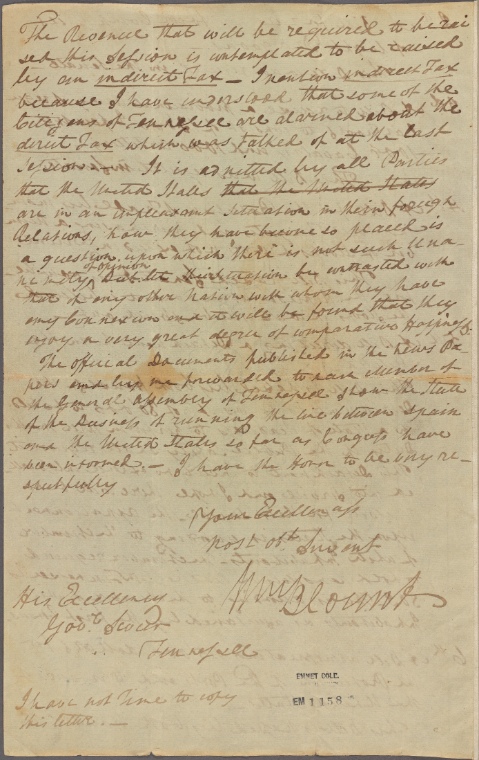 The Revenue that will be required to be rai
sed this Session is contemplated to be raised
by an indirect Tax — I mention indirect Tax
because I have understood that some of the
Citizens of Tennessee are alarmed about the
direct Tax which was talked of at the last
Session — It is admitted by all Parties
that the United States that the United States
are in an unpleasant Situation in their foreign
Relations, how they have become so placed is
a question upon which there is not such Una-
nimity of opinion, but let their situation be contrasted with
that of any other Nation with whom they have
any Connexion and it will be found that they
enjoy a very great degree of comparative Happiness.
The official Documents published in the News Pa-
pers and by me forwarded to each Member of
the General Assembly of Tennessee show the state
of the Business of running the line between Spain
and the United States so far as Congress have
been informed. — I have the Honor to be very re-
spectfully
Your Excellencys
most obt Servant
Wm Blount
His Excellency
Govr Sevier
Tennessee
I have not Time to copy
this letter. —
EMMET COLL.
EM 1158